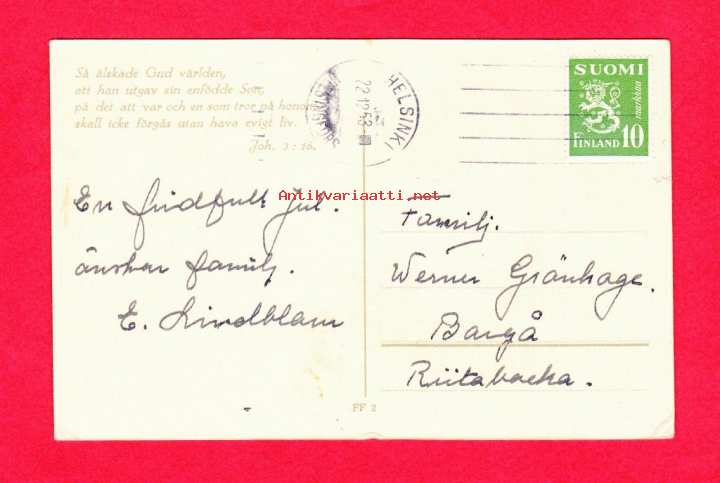 Så älskade Gud världen,
att han utgav sin enfödde Son,
på det att var och en som tror på honom
skall icke förgås utan hava evigt liv.
Joh. 3 : 16.
HELSINKI
22.12.52
SUOMI
markkaa
FINLAND 10
Antikvariaatti.net
En fridfull Jul.
önskar familj.
E. Lindblam
Familj.
Werner Grönhage.
Borgå
Riitabacka.
FF 2